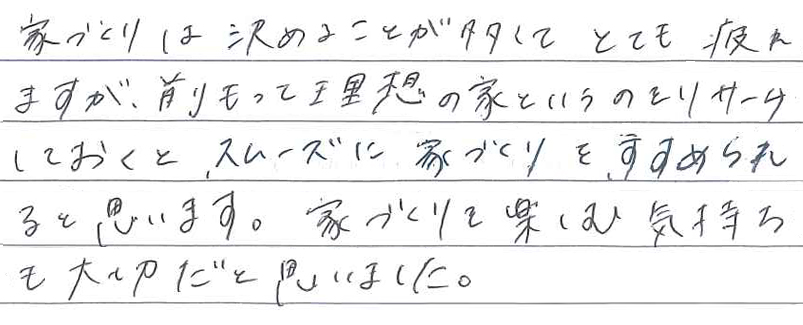 家づくりは決めることが多くてとても疲れ
ますが、前もって理想の家というのをリサーチ
しておくと、スムーズに家づくりを、すすめられ
ると思います。家づくりを楽しむ気持ち
も大切だと思いました。